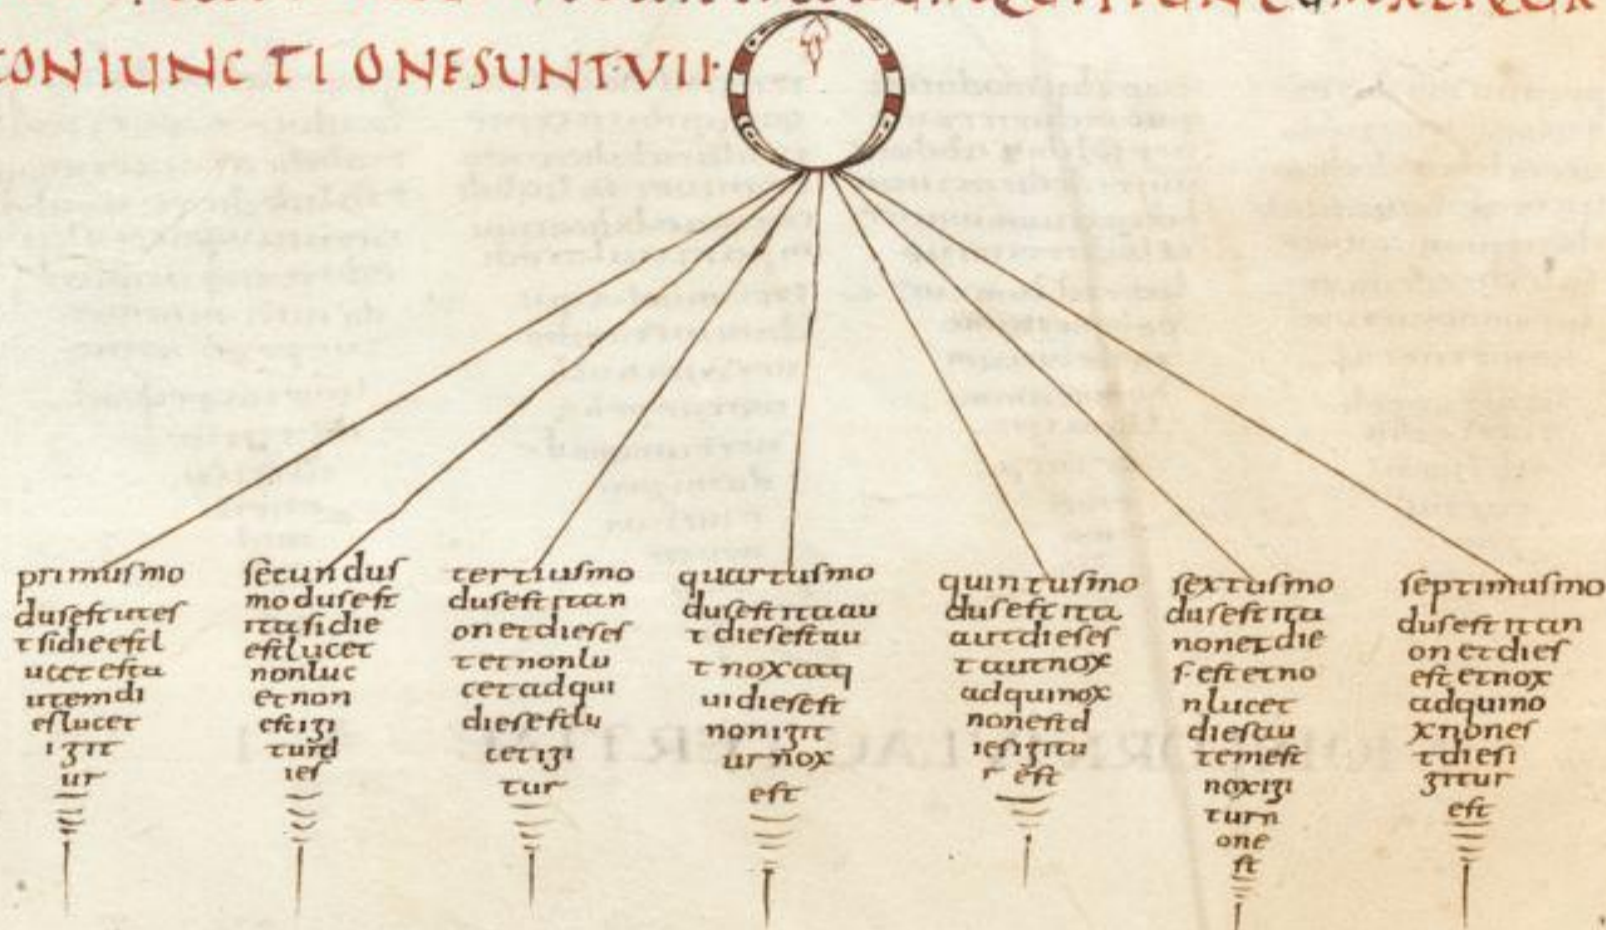 CONIUNCTIONESUNT.VII.
primusmo
dusestutes
tsidieestl
ucetesta
utemdi
eslucet
igit
ur
secundus
modusest
itasidie
estlucet
nonluc
etnon
estigi
turd
ies
tertiusmo
dusestitan
onetdieses
tetnonlu
cetadqui
dieseſtlu
cetigi
tur
quartusmo
dusestitaau
tdiesestau
tnoxatq
uidiesest
nonigit
urnox
est
quintusmo
dusestita
autdieses
tautnox
adquinox
nonestd
iesigitu
r est
sextusmo
dusestita
nonetdie
s.estetno
nlucet
diesau
temest
noxigi
turn
one
st
septimusmo
dusestitan
onetdies
estetnox
adquino
xnones
tdiesi
gitur
est